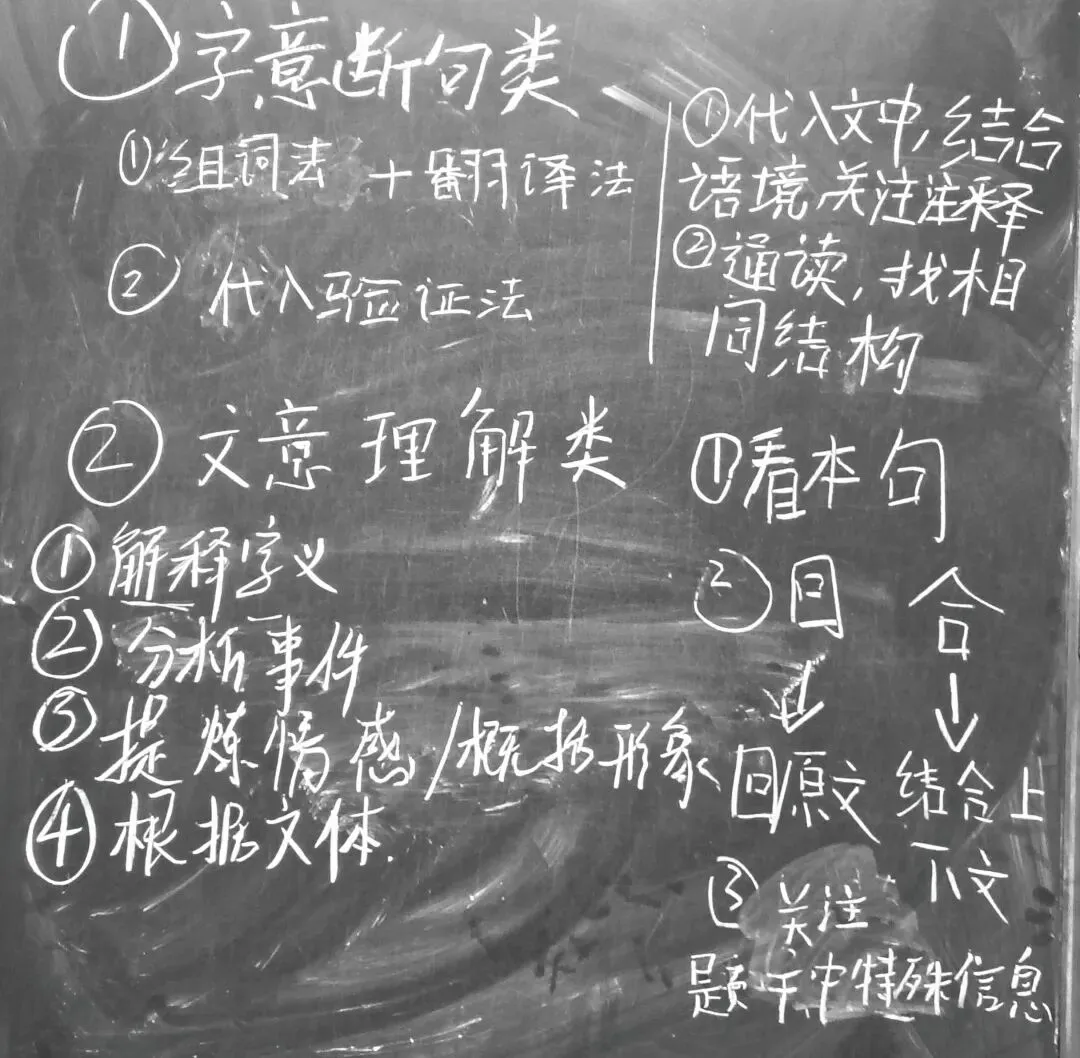 ①字意断句类
①组词法 + 翻译法
② 代入验证法
①代入文中,结合
语境关注注释
②通读,找相
同结构
② 文意理解类
①解释字义
②分析事件
③提炼情感/概括形象
④根据文体.
①看本句
②回 合
↓ ↓
回原文 结合上
下文
③关注
题干中特殊信息